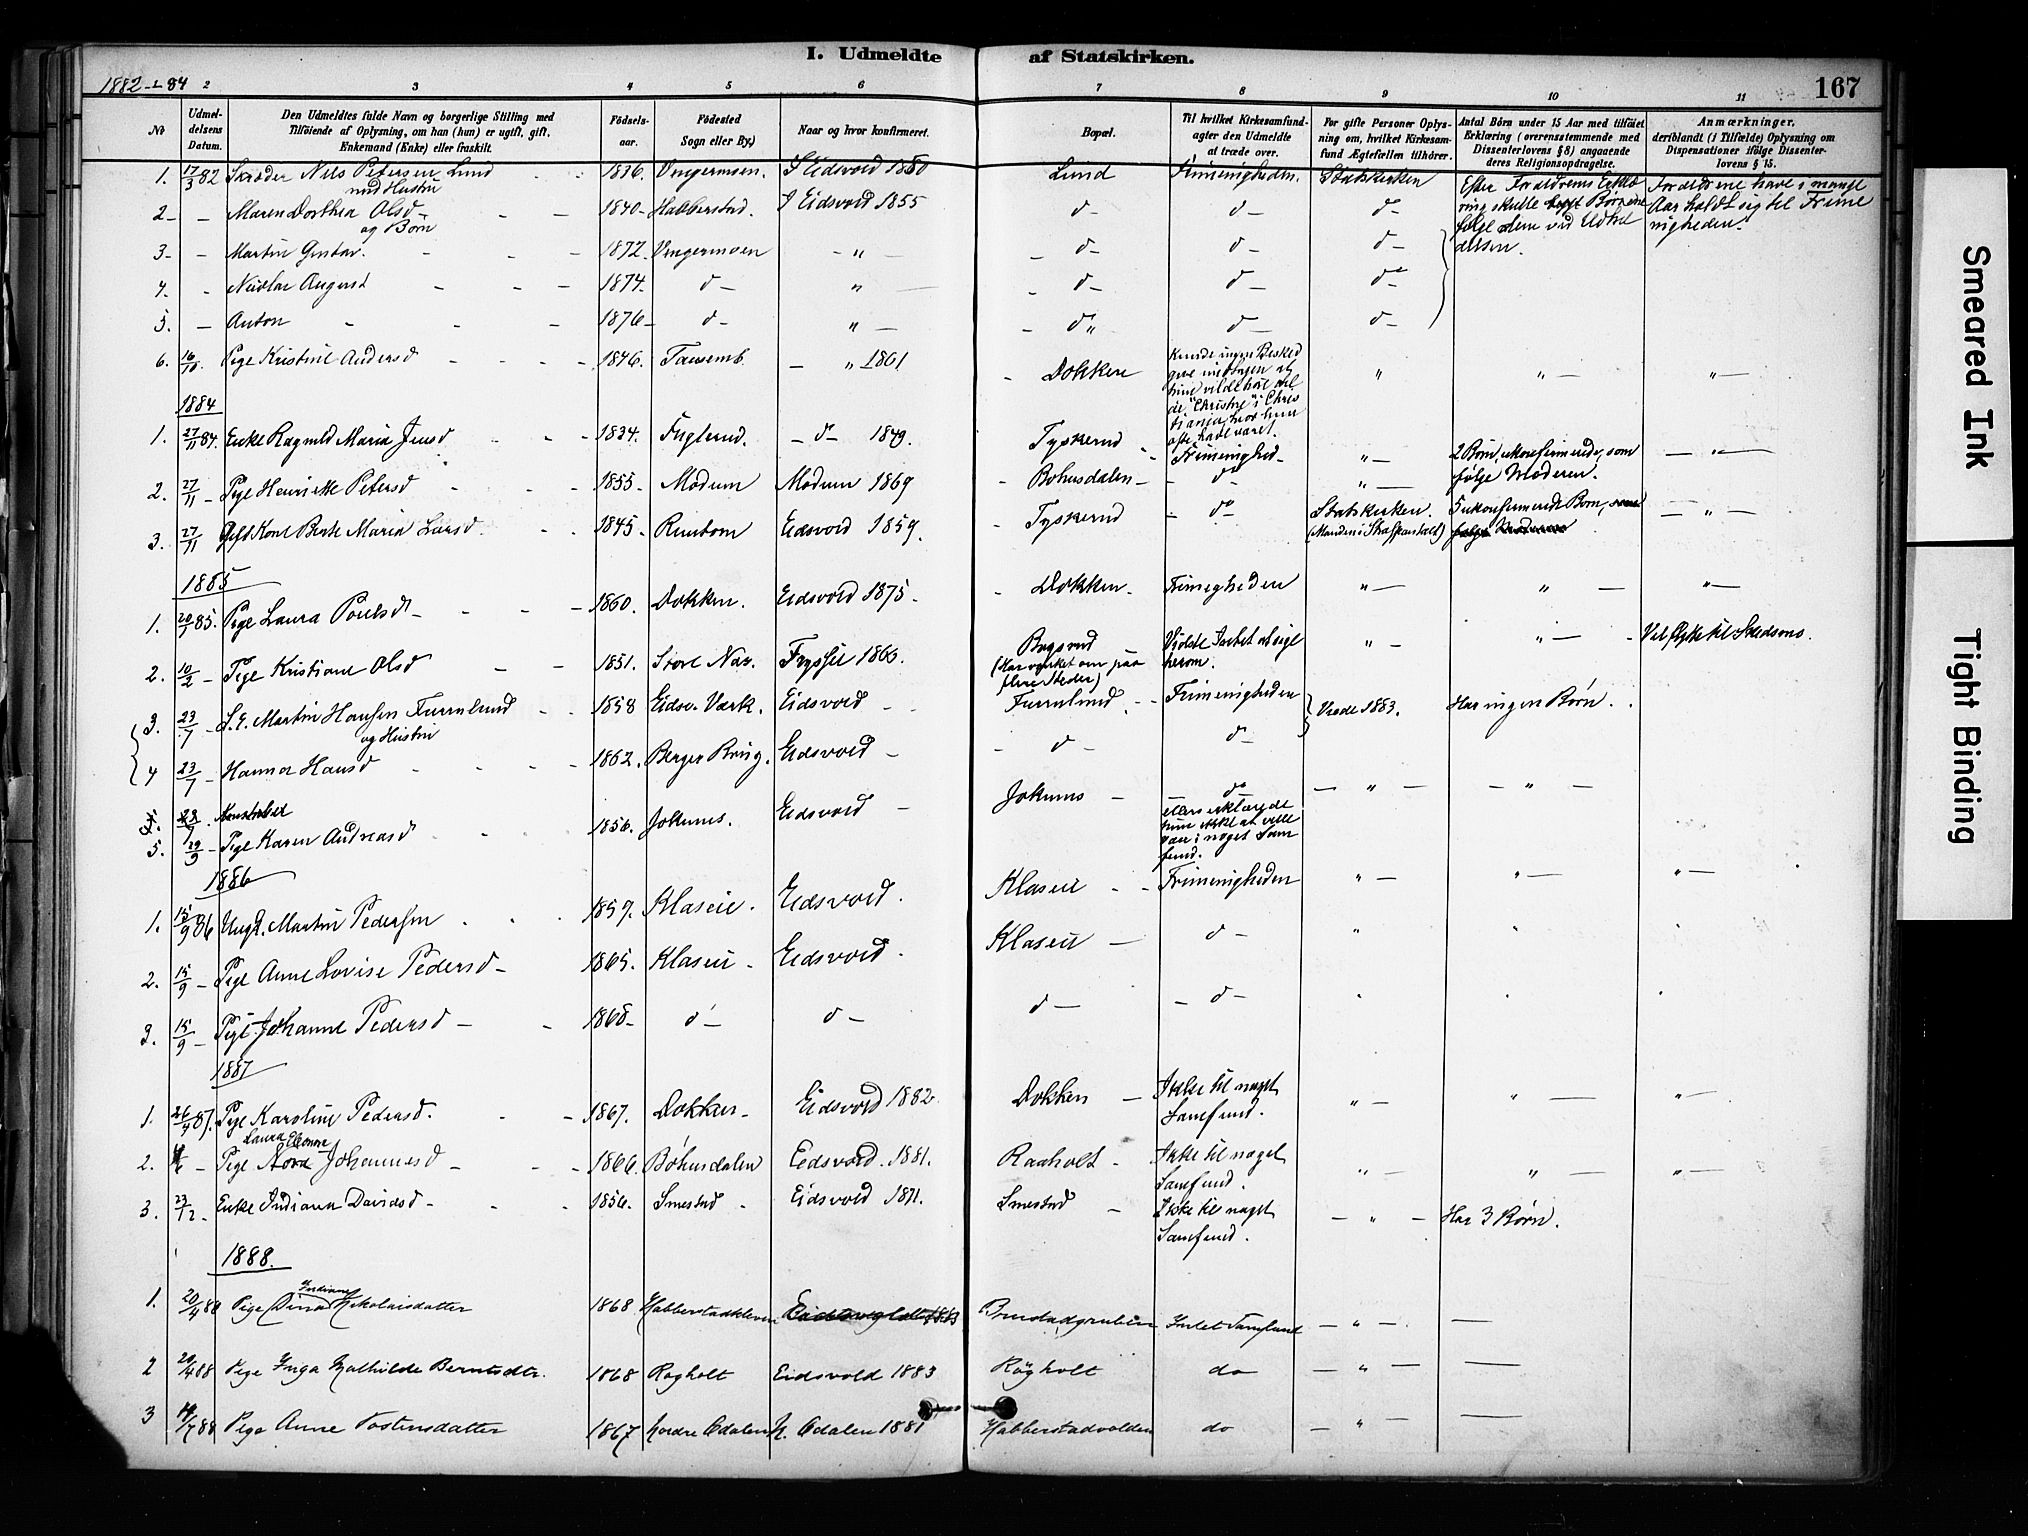 I. Udmeldte af Statskirken.
167
1882-84
2 3 4 5 6 7 8 9 10 11
No
Udmeldelsens Datum.
Den Udmeldtes fulde Navn og borgerlige Stilling med Tilføiende af Oplysning, om han (hun) er ugift, gift, Enkemand (Enke) eller fraskilt.
Fødselsaar.
Fødested Sogn eller By.)
Naar og hvor konfirmeret.
Bopæl.
Til hvilket Kirkesamfund agter den Udmeldte at træde over.
For gifte Personer Oplysning om, hvilket Kirkesamfund Ægtefællen tilhører.
Antal Børn under 15 Aar med tilføiet Erklæring (overensstemmende med Dissenterloven § 8) angaaende deres Religionsopdragelse.
Anmærkninger, deriblandt (i Tilfælde) Oplysning om Dispensationer ifølge Dissenterlovens § 15.
1. 17/3 82 Skræder Nils Petersen Lund 1836. Vingermoen. I Eidsvold 1850 Lund Frimenigheden. Statskirken
med Hustru
2 - - Maren Dorthea Olsd - - 1840 - Habberstad. I Eidsvold 1855 d- d- d-
og Børn
Efter Forældrenes Erklæring skulle Børnene følge dem ved Udtrædelsen.
Forældrene have i mange Aar holdt sig til Frimenigheden.
3 - - Martin Gustav. - - - 1872. Vingermoen - " - - d- d- d-
4. - Nicolai August - - - 1874. d- " - - d- d- d-
5. - Anton - - - 1876 - d- " - - d" d- d-
6. 16/10 Pige Kristine Andersd - - - 1846. Tansemb. - " 1861 - Dokken
Kunde ingen Besked give med hun vilde høre til de "Christne" i Christiania, hvor hun ofte havde været.
" " - " -
1884
1. 27/11 84. Enke Ragnild Maria Jensd - - - 1834. Fuglerud. - d- 1849. Tyskerud - Frimenighed - " - 2 Børn, ukonfirmerede, som følge Moderen. - " -
2. 27/11 - Pige Henriette Petersd - - 1855 - Modum Modum 1869 - Bohusdalen - - d- " -
3. 27/11 Gift Kone Berte Maria Larsd. - - 1845 - Rustom Eidsvold 1859. - Tyskerud - d- Statskirken. (Manden i Straffanstalt) 5 ukonfirmerede Børn, som følge Moderen - " -
1885
1. 20/1 85. Pige Laura Poulsd - - - - 1860. Dokken. Eidsvold 1875 - - Dokken. Frimenigheden " - " - " -
2. 10/2 - Pige Kristiane Olsd - - 1851. Store Næs. Trysil 1866. Bøgerud (Har vanket om paa flere Steder) Vidste Intet at sige herom. " - " - - Vil flytte til Skedsmo.
3. 23/7 - S. E. Martin Hansen Furrulund - - 1858 Eidsv. Værk. Eidsvold - - Furrulund - - Frimenigheden Viede 1883. Har ingen Børn. .
og Hustru
4 23/7 - Hanna Hansd - - - - 1862. Berger Brug. Eidsvold - - d- d-
5. 23/9.
5. 29/9 - Pige Karen Andreasd - - 1856. Jøkums. Eidsvold - Jøkums - d- ellers erklærede hun ikke at ville gaa i noget Samfund. - " - - " -
1886
1. 15/9 86 Ungk. Martin Pedersen - - - 1857. Klaseie. Eidsvold. Klaseie - - Frimenigheden " - " - " -
2. 15/9 - Pige Anne Lovise Pedersd - 1865. Klaseie - Eidsvold. Klaseie - d- " " "
3. 15/9 - Pige Johanne Pedersd - - 1868 - d- d- d- - d- " "
1887
1. 26/4 87. Pige Karoline Pedersd. - - 1867. Dokken - Eidsvold 1882. Dokken - Ikke til noget Samfund. " - " - " -
Laura Eleonora
2. 4/6 - Pige Nora Johannesd - - - 1866. Bøhusdalen Eidsvold. 1881. Raaholt - Ikke til noget Samfund. " - " - " -
3. 23/12 - Enke Indiana Davidsd - - - 1856. Smestad - Eidsvold 1871. Smestad - Ikke til noget Samfund. - " - Har 3 Børn.
1888.
Indiana
1. 20/4 88 Pige Dina Nikolaisdatter 1868 Habberstadkleven Brustadgrubben Intet Samfund - " - -
2 20/4 88 Pige Inga Mathilde Berntsdtr. 1868 Ragholt Eidsvold 1883 Rågholt do - " - -
3 14/7 88 Pige Anne Tostensdatter 1867 Nordre Odalen N. Odalen 1881 Habberstadvolden do - " - -
Smeared Ink
Tight Binding